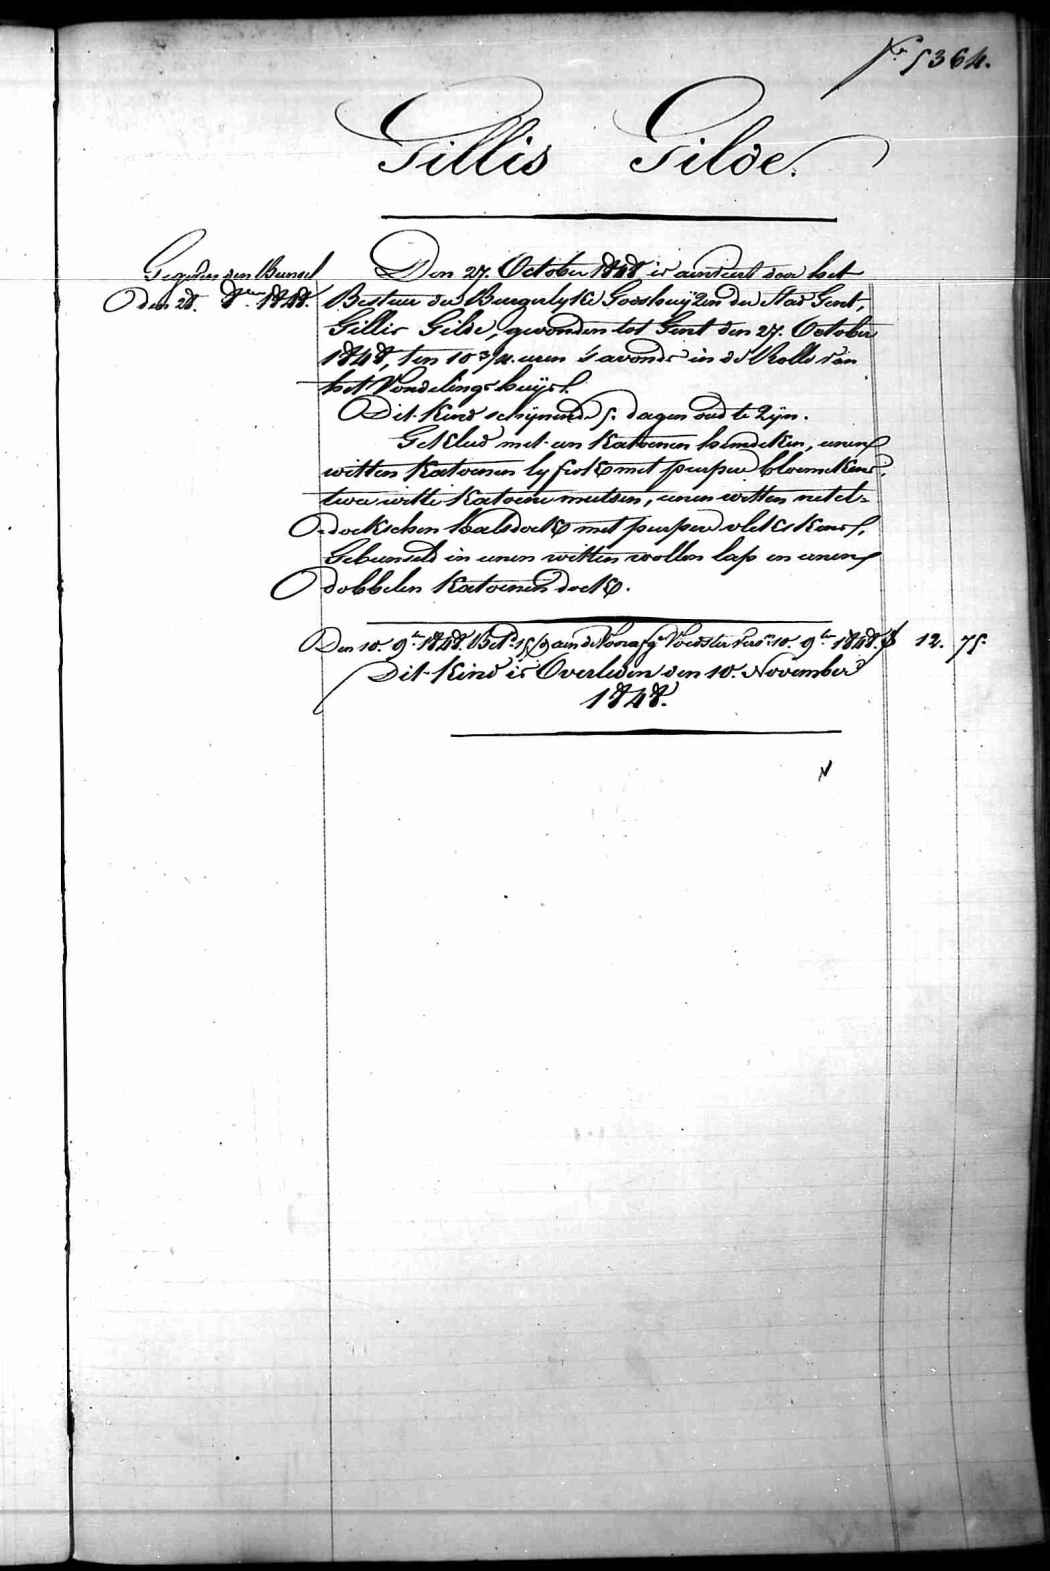 N.º 5364.
Gillis Gilde.
Gegeven den Bunsel
den 28. 8.ber 1848.
Den 27. October 1848 is aanveerd door het
Bestuer der Burgerlyke Godshuÿzen der Stad Gent,
Gillis Gilde, gevonden tot Gent den 27. October
1848, ten 10 3/4 uren 's avonds in de Rolle van
het Vondelingshuÿs.
Dit kind schijnende 5. dagen oud te zijn.
Gekleed met een katoenen hemdeken, eenen
witten katoenen lyfrok met purpere bloemekens,
twee witte katoene mutsen, eenen witten netel-
doekschen halsdoek met purpere vlekskens,
Gebunseld in eenen witten wollen lap en eenen
dobbelen katoenen doek.
Den 10. 9.ber 1848. Bet. 15 aan de Voedster 10. 9.ber 1848. f 12. 75.
Dit kind is Overleden den 10. November
1848.